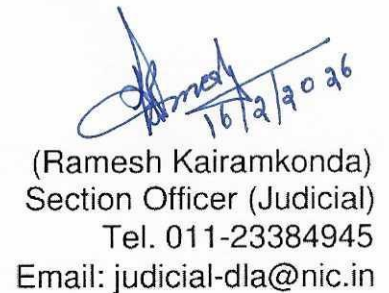 Ramesh
16/2/2026
(Ramesh Kairamkonda)
Section Officer (Judicial)
Tel. 011-23384945
Email: judicial-dla@nic.in